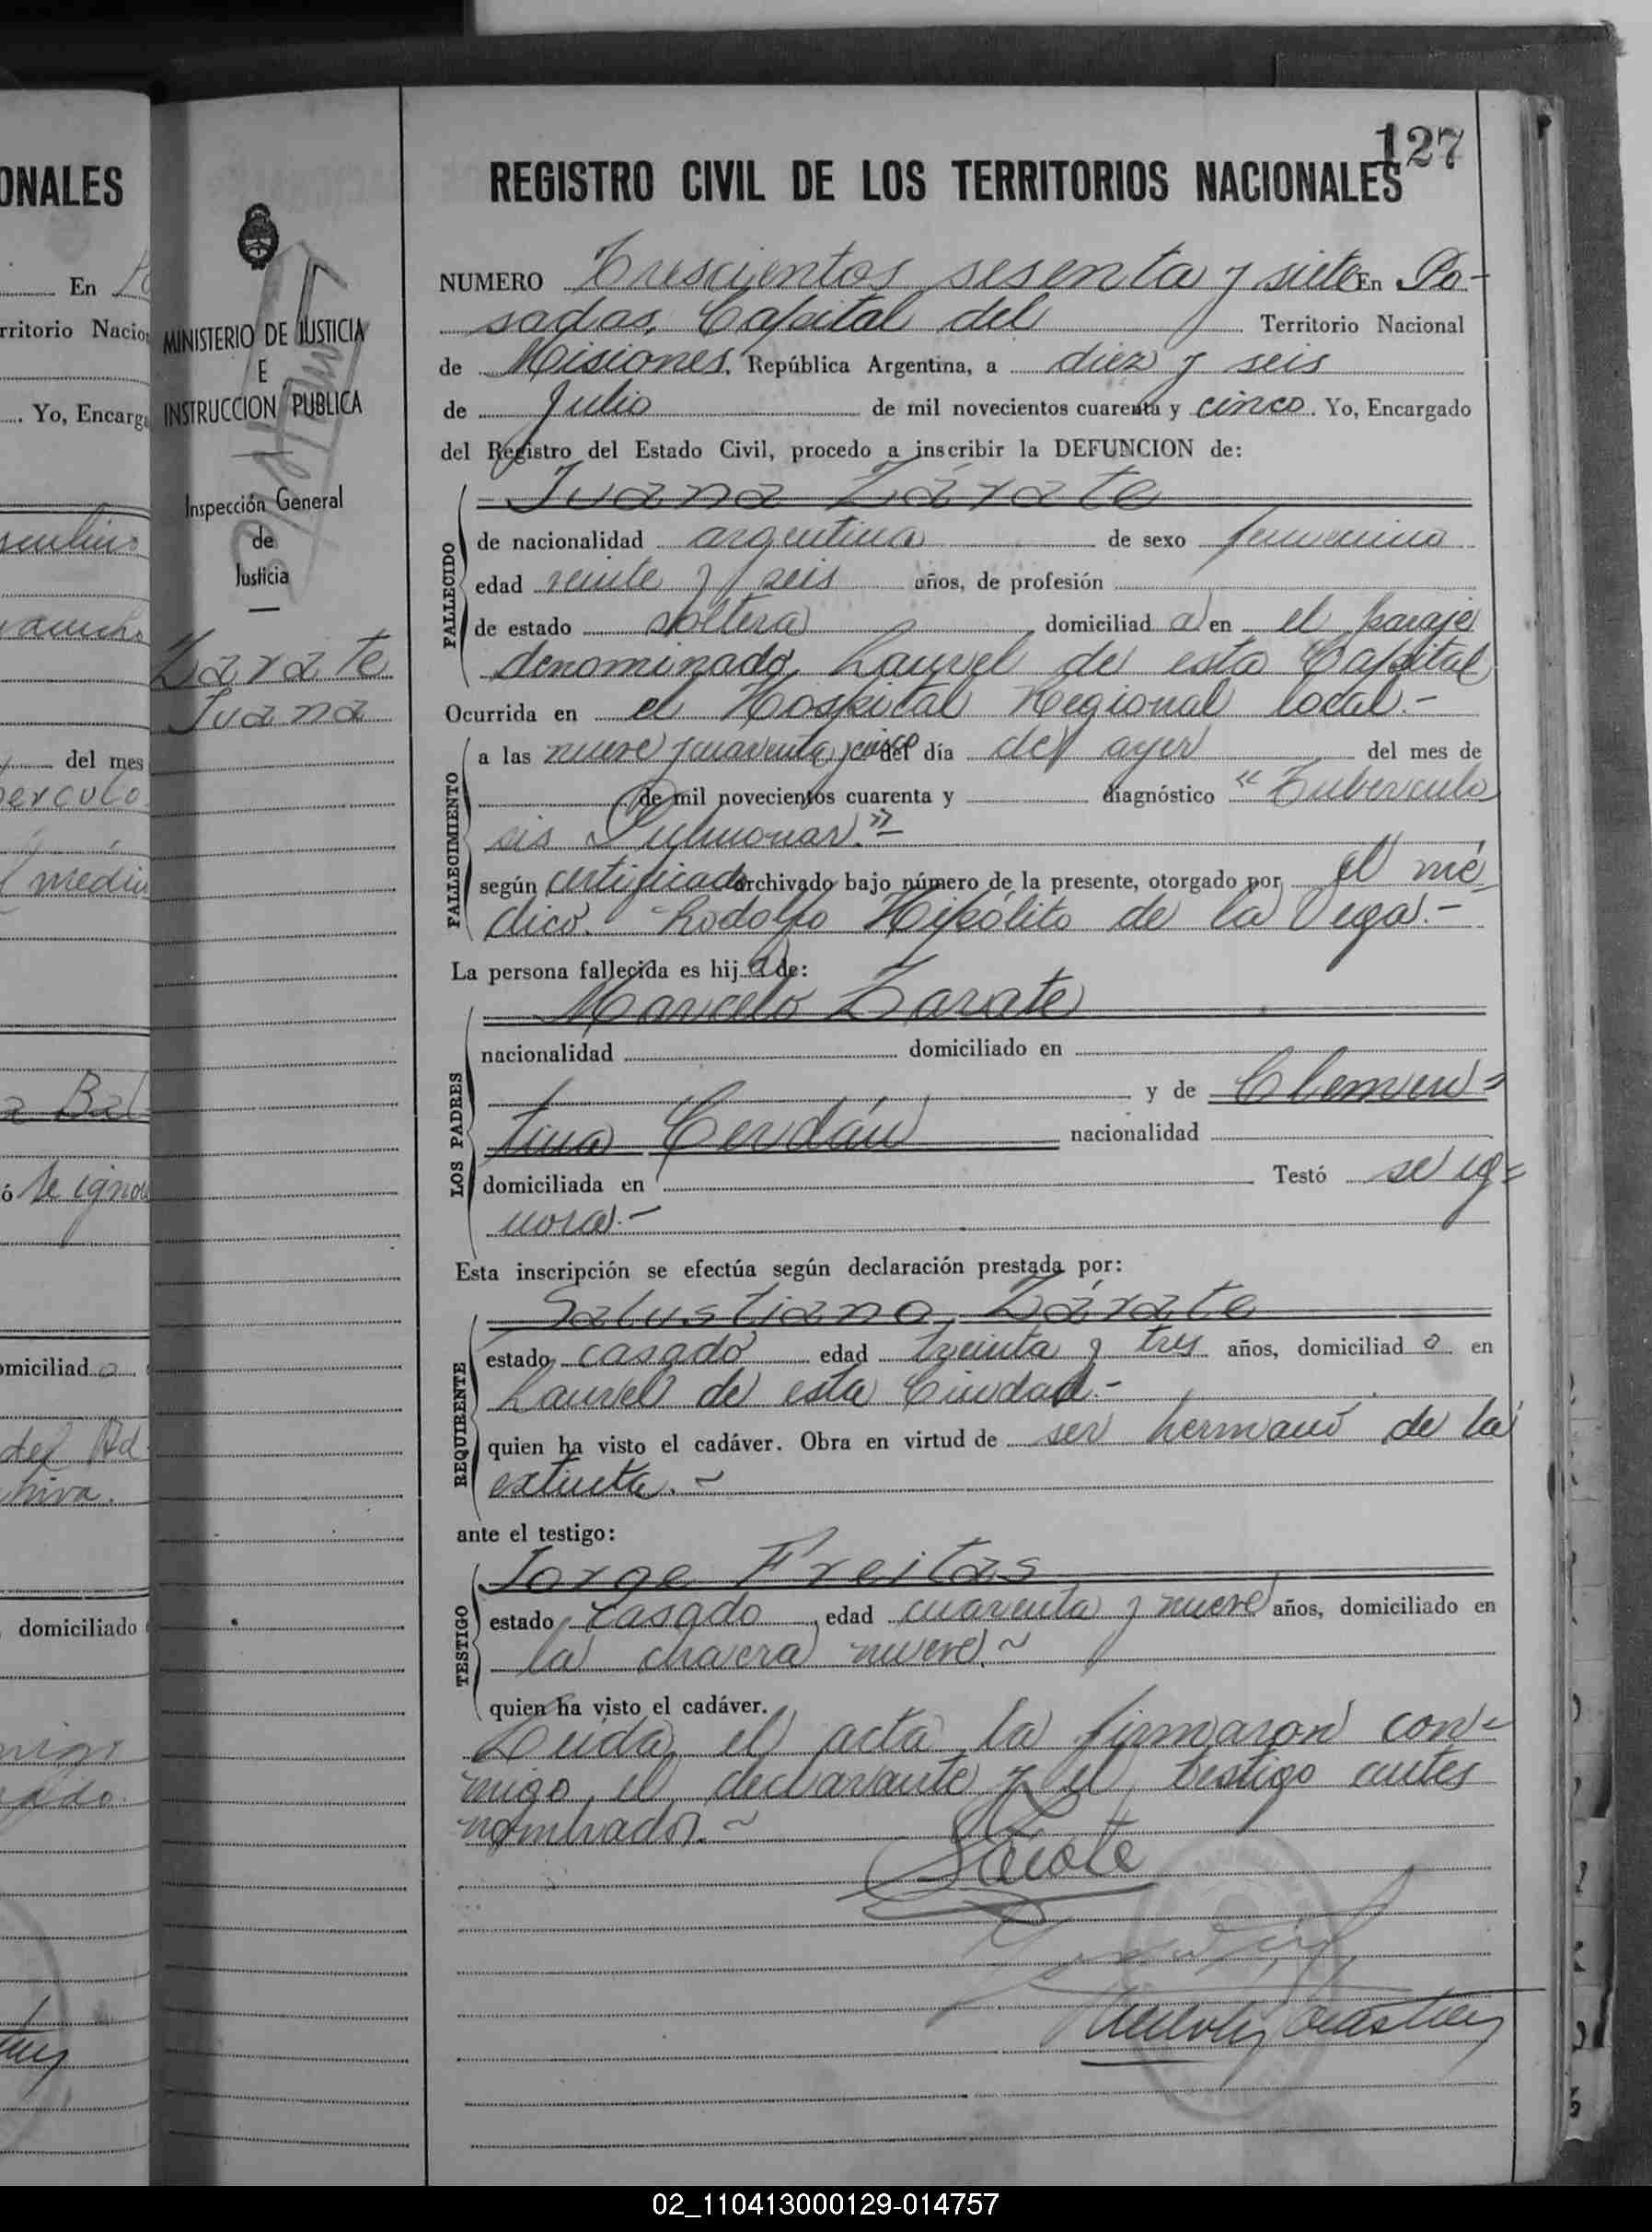 ONALES
En
rritorio Nacio
Yo, Encarg
del mes
erculo
a Bal
ó se ignor
omiciliad o
del
domiciliado
MINISTERIO DE JUSTICIA
E
INSTRUCCION PUBLICA
Inspección General
de
Justicia
Zarate
Juana
127
REGISTRO CIVIL DE LOS TERRITORIOS NACIONALES
NUMERO Trescientos sesenta y siete En Po-
sadas, Capital del Territorio Nacional
de Misiones, República Argentina, a diez y seis
de Julio de mil novecientos cuarenta y cinco. Yo, Encargado
del Registro del Estado Civil, procedo a inscribir la DEFUNCION de:
Juana Zárate
FALLECIDO
de nacionalidad argentina de sexo femenino
edad veinte y seis años, de profesión
de estado soltera domiciliad a en el paraje
denominado Laurel de esta Capital
Ocurrida en el Hospital Regional local.-
FALLECIMIENTO
a las nueve y cuarenta y cinco del día de ayer del mes de
de mil novecientos cuarenta y diagnóstico "Tuberculo
sis Pulmonar."-
según certificado archivado bajo número de la presente, otorgado por el mé
dico. Rodolfo Hipólito de la Vega.-
La persona fallecida es hij a de:
Marcelo Zarate
LOS PADRES
nacionalidad domiciliado en
y de Clemen=
tina Cerdán nacionalidad
domiciliada en Testó se ig=
nora.-
Esta inscripción se efectúa según declaración prestada por:
Salustiano Zárate
REQUIRENTE
estado casado edad treinta y tres años, domiciliad o en
Laurel de esta Ciudad.-
quien ha visto el cadáver. Obra en virtud de ser hermano de la
extinta.-
ante el testigo:
Jorge Freitas
TESTIGO
estado casado, edad cuarenta y nueve años, domiciliado en
la chacra nueve.~
quien ha visto el cadáver.
Leida el acta la firmaron con-
migo el declarante y el testigo antes
nombrados.~
02_110413000129-014757